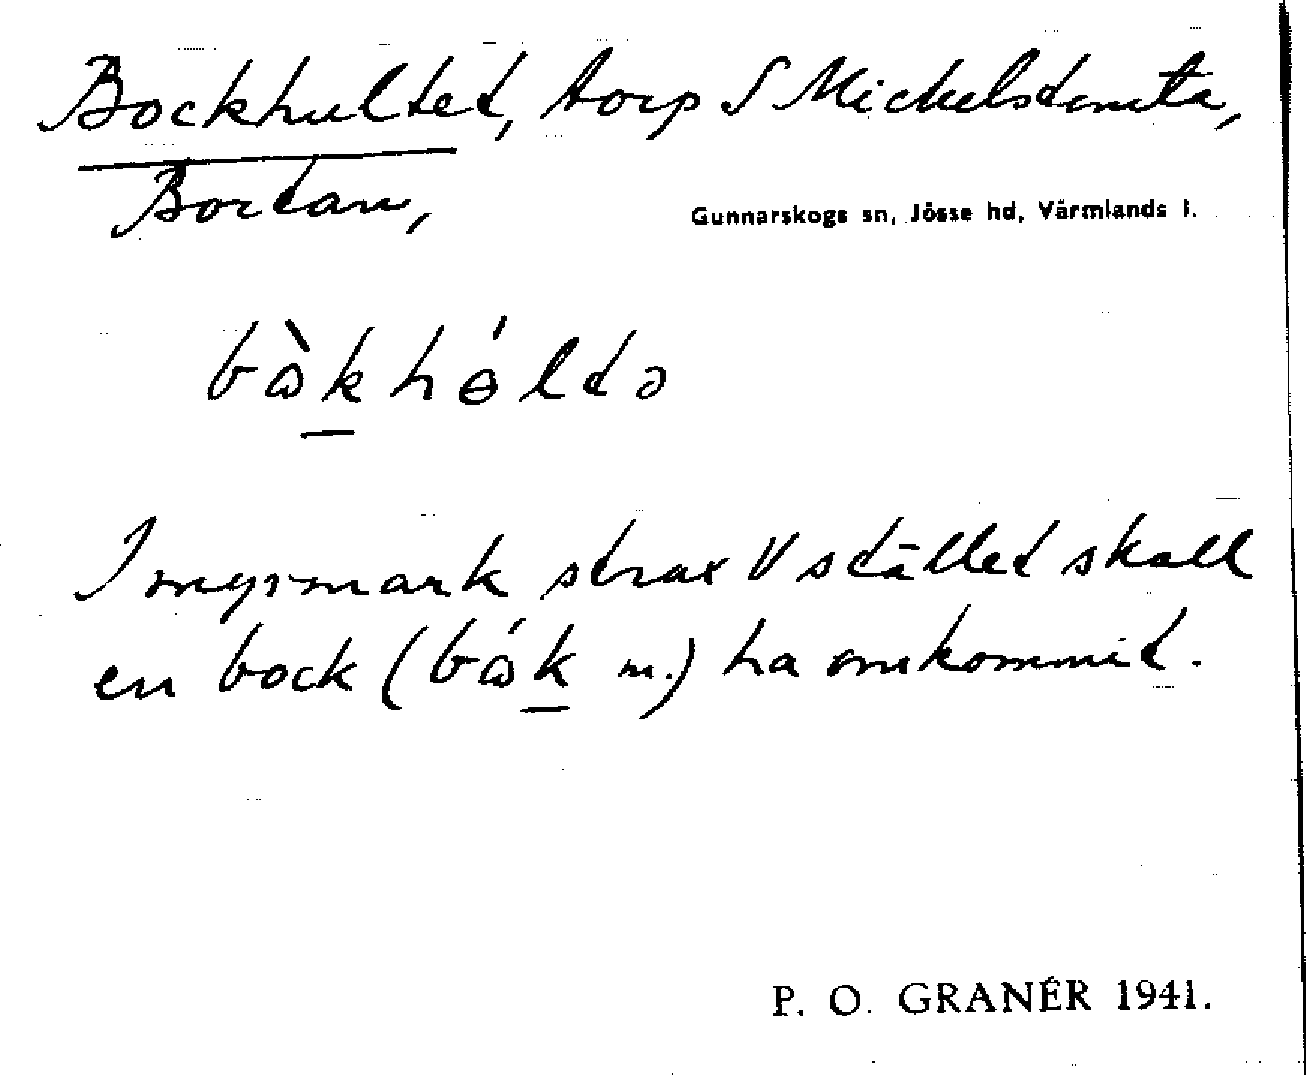 Bockhultet, torp S Mickelstomta,
Bortan,
Gunnarskogs sn, Jösse hd, Värmlands l.
bὼkhɵ́ltə
I myrmark strax V stället skall
en bock (bώk m.) ha omkommit.
P. O. GRANÉR 1941.